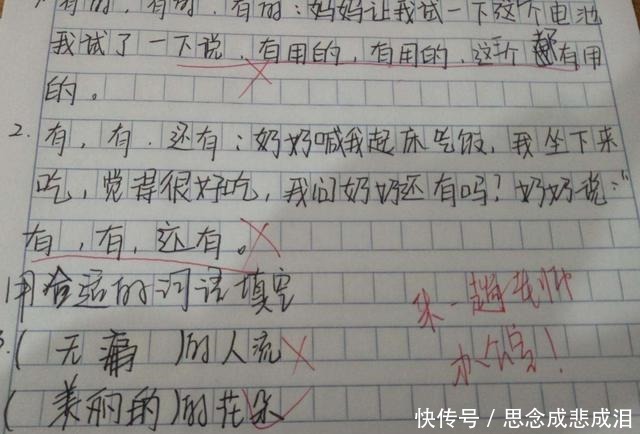 有的，有的，有的：妈妈让我试一下这个电池
我试了一下说，有用的，有用的，这个都有用
的。
2. 有，有，还有：奶奶喊我起床吃饭，我坐下来
吃，觉得很好吃，我问奶奶还有吗？奶奶说："
有，有，还有。
用合适的词语填空
3. ( 无痛 )的人流
来一趟老师
办公室！
( 美丽的 )的花朵
快传号 / 思念成悲成泪